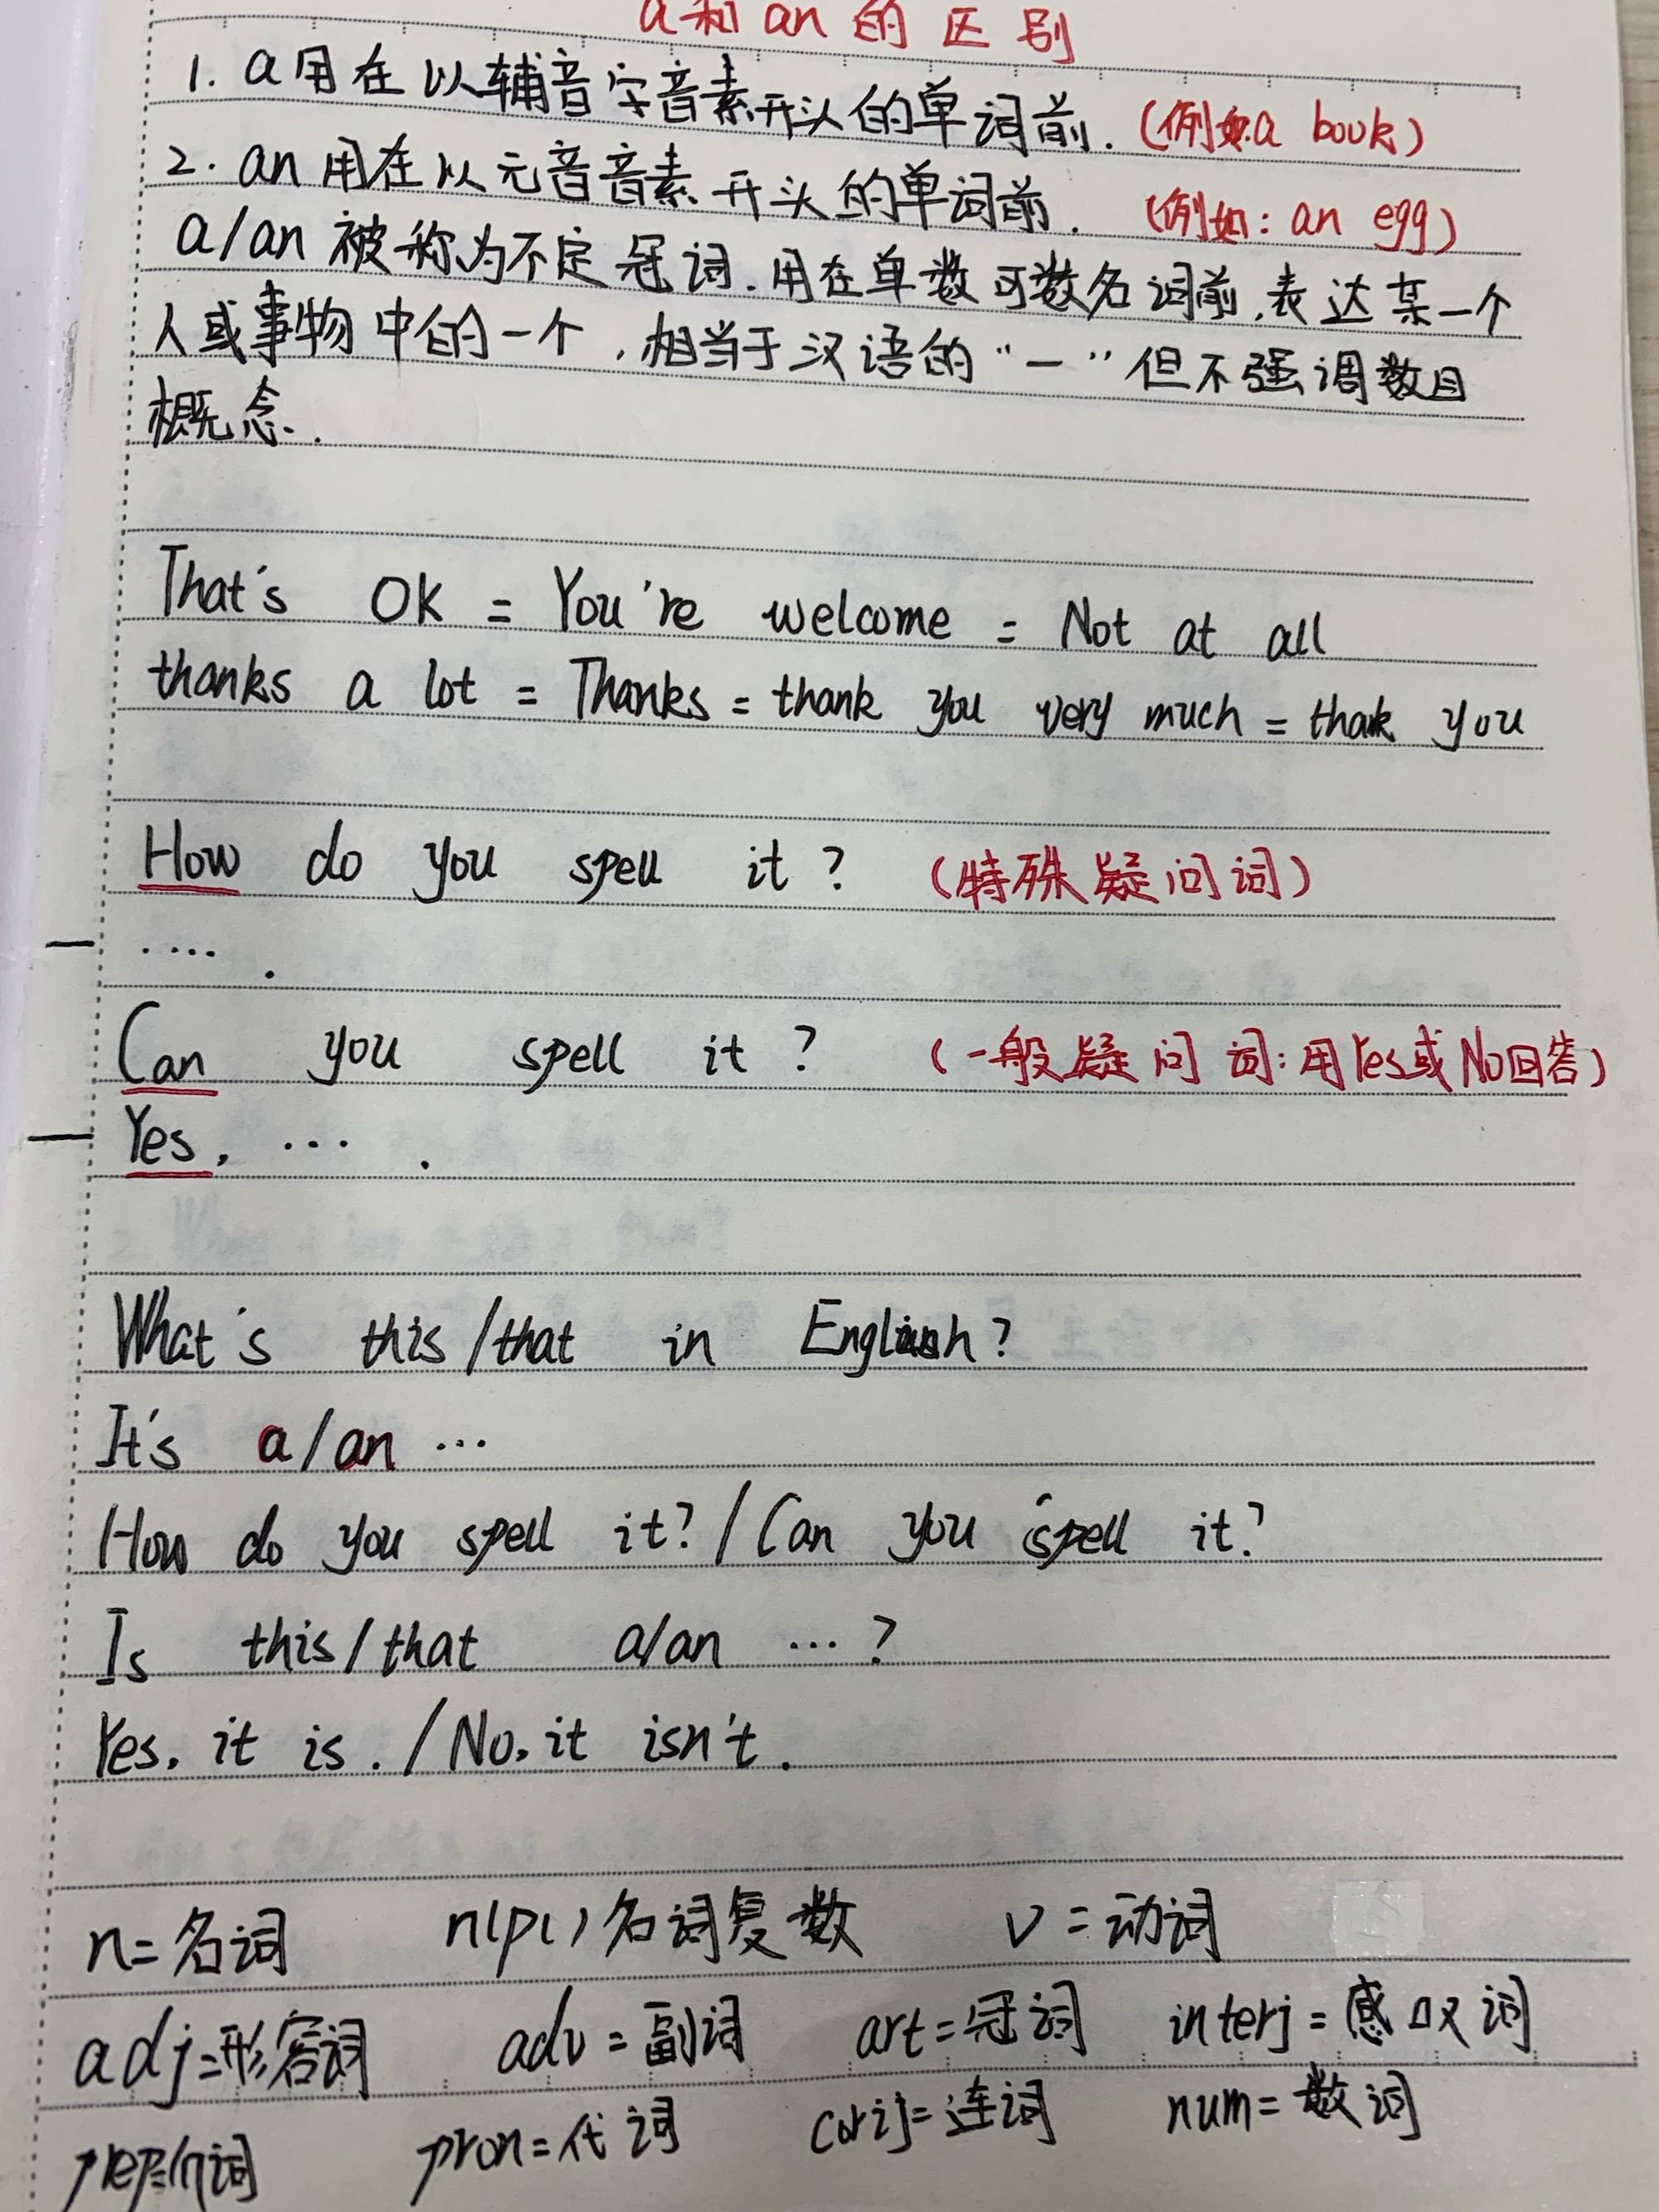 a和an的区别
1. a用在以辅音字音素开头的单词前. (例如a book)
2. an用在以元音音素开头的单词前. (例如: an egg)
a/an被称为不定冠词.用在单数可数名词前,表达某一个
人或事物中的一个,相当于汉语的“一”但不强调数目
概念.
That's OK = You're welcome = Not at all
thanks a lot = Thanks = thank you very much = thank you
How do you spell it? (特殊疑问词)
— .... .
Can you spell it? (一般疑问词:用Yes或No回答)
— Yes, ... .
What's this/that in English?
It's a/an ...
How do you spell it? / Can you spell it?
Is this/that a/an ...?
Yes, it is. / No, it isn't.
n=名词 n(pl)名词复数 v=动词
adj=形容词 adv=副词 art=冠词 interj=感叹词
prep=介词 pron=代词 conj=连词 num=数词